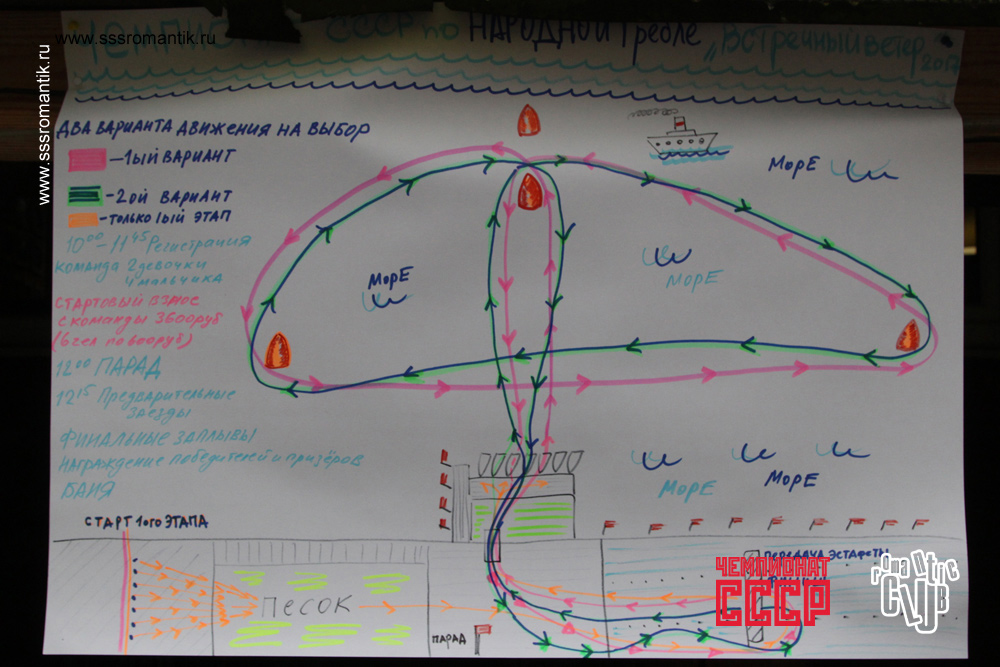 www.sssromantik.ru
www.sssromantik.ru
СССР по НАРОДНОЙ Гребле „Встречный ветер 2017
ДВА ВАРИАНТА ДВИЖЕНИЯ НА ВЫБОР
—1ый ВАРИАНТ
-2ой ВАРИАНТ
-только 1ый ЭТАП
10⁰⁰-11⁴⁵ Регистрация
команда 2 девочки
4 мальчика
стартовый взнос
с команды 3600руб
(6 чел по 600руб)
12⁰⁰ ПАРАД
12¹⁵ Предварительные
заезды
ФИНАЛЬНЫЕ ЗАПЛЫВЫ
НАГРАЖДЕНИЕ победителей и призёров
БАНЯ
МОРЕ
МОРЕ
МОРЕ
МОРЕ
МОРЕ
СТАРТ 1ого ЭТАПА
ПЕСОК
ПАРАД
ПЕРЕДАЧА ЭСТАФЕТЫ
ЧЕМПИОНАТ
СССР
romantic
CLUB